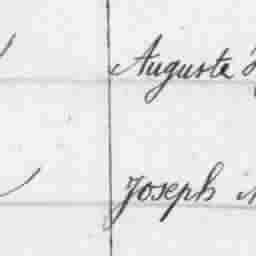 Augusta
Joseph